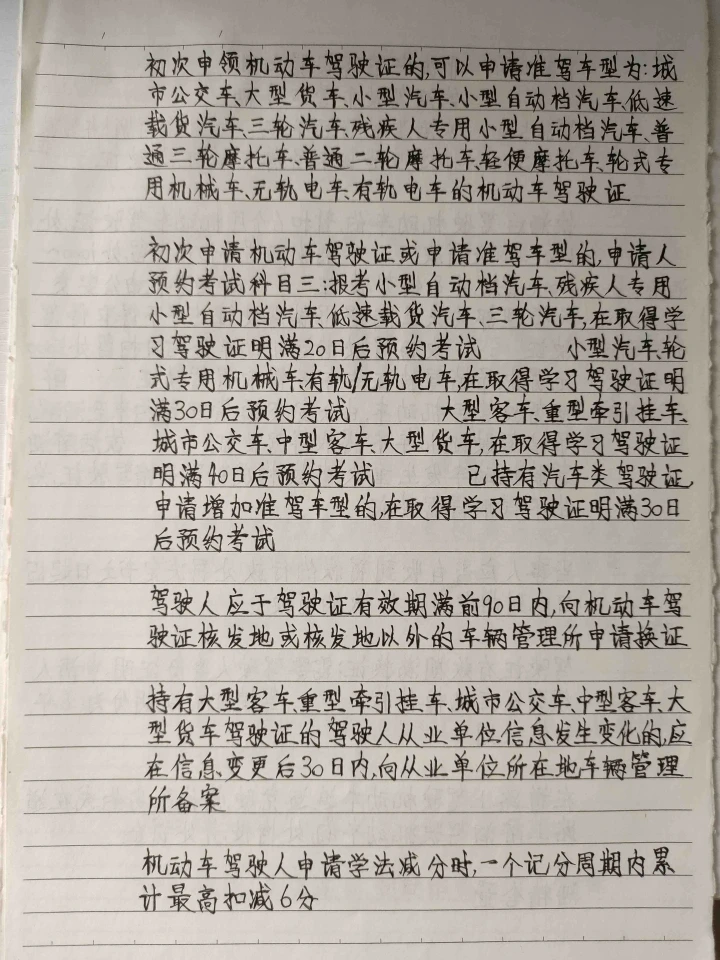 初次申领机动车驾驶证的,可以申请准驾车型为:城
市公交车、大型货车、小型汽车、小型自动档汽车、低速
载货汽车、三轮汽车、残疾人专用小型自动档汽车、普
通三轮摩托车、普通二轮摩托车、轻便摩托车、轮式专
用机械车、无轨电车、有轨电车的机动车驾驶证
初次申请机动车驾驶证或申请准驾车型的,申请人
预约考试科目三:报考小型自动档汽车、残疾人专用
小型自动档汽车、低速载货汽车、三轮汽车,在取得学
习驾驶证明满20日后预约考试 小型汽车、轮
式专用机械车、有轨/无轨电车,在取得学习驾驶证明
满30日后预约考试 大型客车、重型牵引挂车、
城市公交车、中型客车、大型货车,在取得学习驾驶证
明满40日后预约考试 已持有汽车类驾驶证,
申请增加准驾车型的,在取得学习驾驶证明满30日
后预约考试
驾驶人应于驾驶证有效期满前90日内,向机动车驾
驶证核发地或核发地以外的车辆管理所申请换证
持有大型客车、重型牵引挂车、城市公交车、中型客车、大
型货车驾驶证的驾驶人从业单位信息发生变化的,应
在信息变更后30日内,向从业单位所在地车辆管理
所备案
机动车驾驶人申请学法减分时,一个记分周期内累
计最高扣减6分